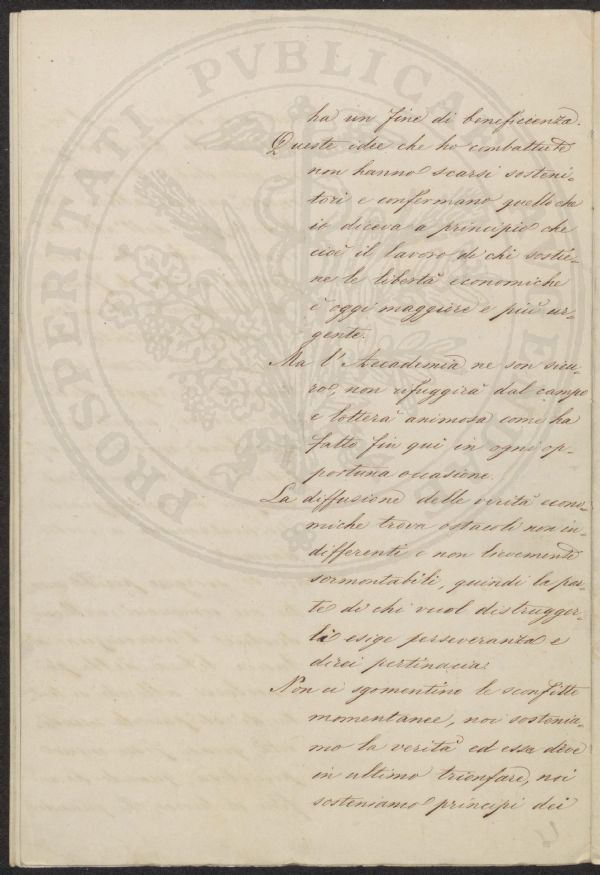 ha un fine di beneficenza.
Queste idee che ho combattute
non hanno scarsi sosteni-
tori e confermano quello che
io diceva a principio che
cioè il lavoro di chi sostie-
ne le libertà economiche
è oggi maggiore e più ur-
gente.
Ma l'Accademia ne son sicu-
ro, non rifuggirà dal campo
e lotterà animosa come ha
fatto fin qui in ogni op-
portuna occasione.
La diffusione delle verità econo-
miche trova ostacoli non in-
differenti e non lievemente
sormontabili, quindi la par-
te di chi vuol distrugger-
li esige perseveranza e
direi pertinacia.
Non ci sgomentino le sconfitte
momentanee, noi sostenia-
mo la verità ed essa deve
in ultimo trionfare, noi
sosteniamo principi dei
PROSPERITATI PVBLICAE